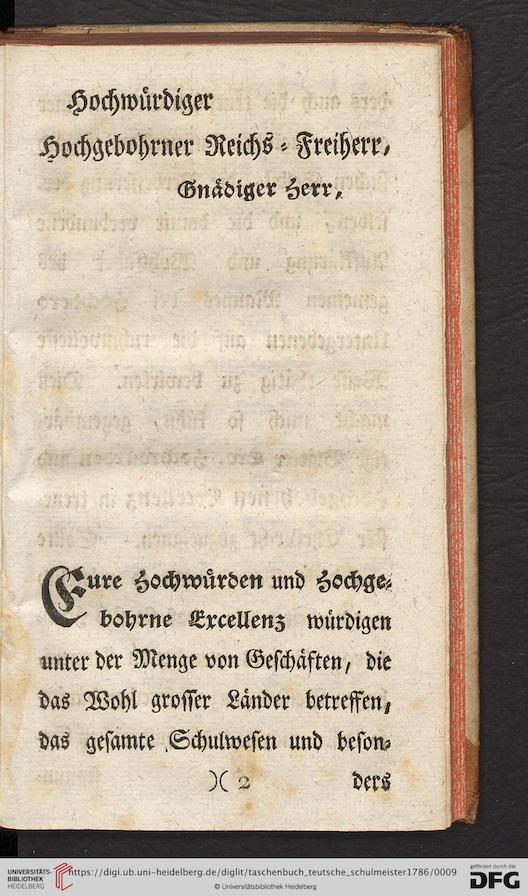 Hochwürdiger
Hochgebohrner Reichs-Freiherr,
Gnädiger Herr,
Eure Hochwürden und Hochge-
bohrne Excellenz würdigen
unter der Menge von Geschäften, die
das Wohl grosser Länder betreffen,
das gesamte Schulwesen und beson-
)( 2 ders
UNIVERSITÄTS-
BIBLIOTHEK
HEIDELBERG
https://digi.ub.uni-heidelberg.de/diglit/taschenbuch_teutsche_schulmeister1786/0009
© Universitätsbibliothek Heidelberg
gefördert durch die
DFG